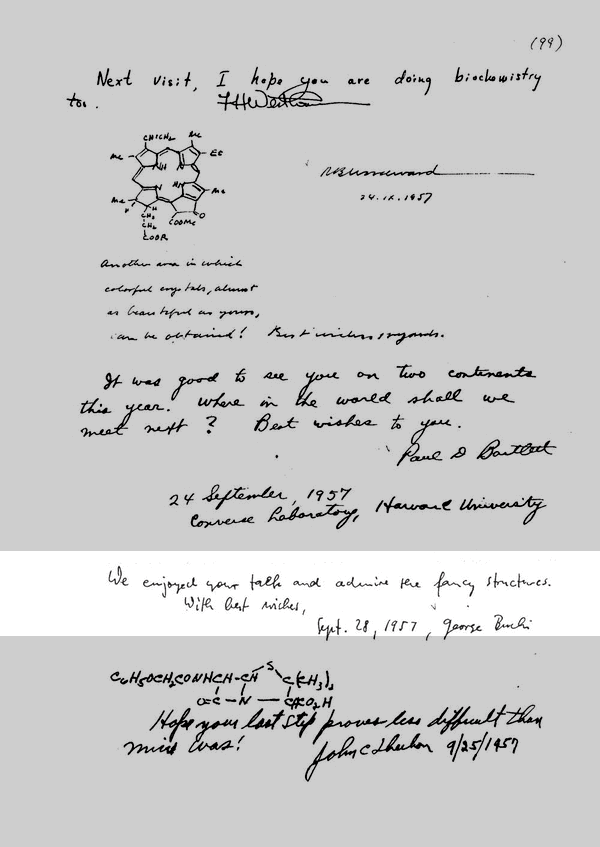 (99)
Next visit, I hope you are doing biochemistry
too. F H Westheimer
CHCH₂ Me
Me Et
NH N
N HN
Me Me
H H
CH₂ COOMe O
CH₂
COOR
R B Woodward
24.IX.1957
Another area in which
colorful crystals, almost
as beautiful as yours,
can be obtained! Best wishes & regards.
It was good to see you on two continents
this year. Where in the world shall we
meet next? Best wishes to you.
Paul D Bartlett
24 September, 1957
Converse Laboratory, Harvard University
We enjoyed your talk and admire the fancy structures.
With best wishes,
Sept. 28, 1957, George Büchi
C₆H₅OCH₂CONHCH-CH S C(CH₃)₂
O=C - N — CHCO₂H
Hope your last step proves less difficult than
mine was!
John C Sheehan 9/25/1957